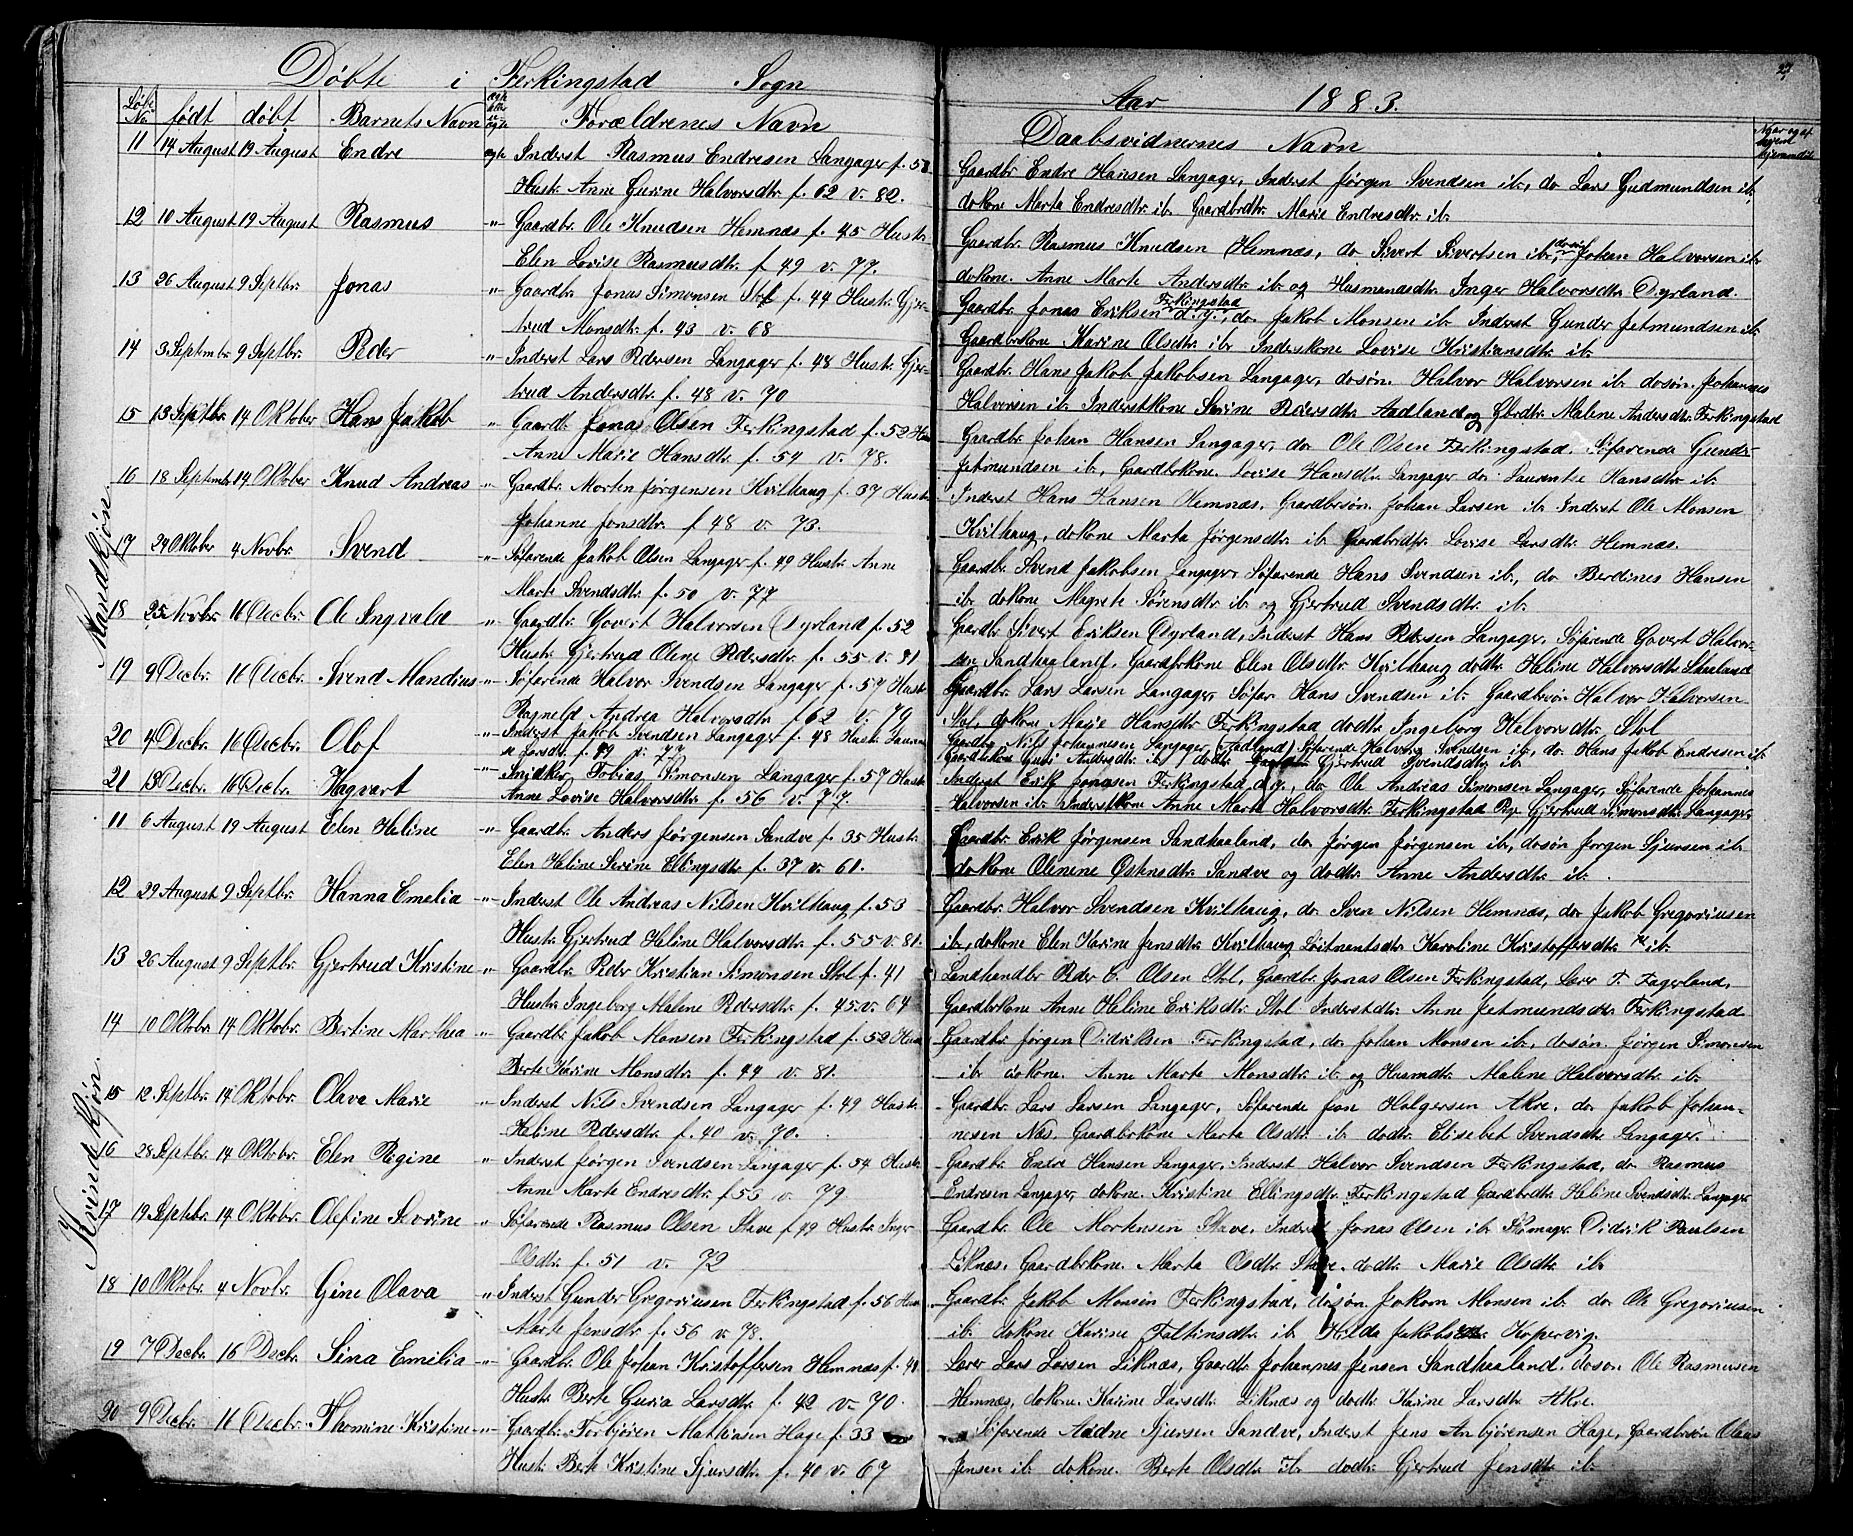 Døbte i Ferkingstad Sogn
Løbe No født døbt Barnets Navn ægte eller uægte Forældrenes Navn
Mandkjøn
11 14 August 19 August Endre ægte Inderst Rasmus Endresen Langager f. 58
Hustr. Anne Gurine Halvorsdtr. f. 62 v. 82.
12 10 August 19 August Rasmus " Gaardbr. Ole Knudsen Hemnæs f. 45 Hustr.
Elen Lovise Rasmusdtr. f 49 v. 77.
13 26 August 9 Septbr. Jonas " Gaardbr. Jonas Simonsen Stol f. 44 Hustr. Gjer-
trud Monsdtr. f. 43 v. 68
14 3 Septembr 9 Septbr. Peder " Inderst Lars Pedersen Langager f. 48 Hustr. Gjer-
trud Andersdtr. f. 48 v. 70
15 13 Septbr. 14 Oktober Hans Jakob " Gaardb. Jonas Olsen Ferkingstad f. 52 Hustr
Anne Marie Hansdtr. f. 54 v. 78.
16 18 Septembr 14 Oktober Knud Andreas " Gaardbr. Morten Jørgensen Kvilhaug f. 37 Hustr.
Johanne Jonsdtr. f 48 v. 73.
17 24 Oktober 4 Novbr. Svend " Søfarende Jakob Olsen Langager f. 49 Hustr. Anne
Marte Svendsdtr. f. 50 v. 77
18 25 Novbr. 16 Decbr. Ole Ingvald " Gaardbr. Govert Halvorsen Dyrland f. 52
Hustr. Gjertrud Olene Pedersdtr. f. 55 v. 81
19 9 Decbr. 16 Decbr. Svend Mandius " Søfarende Halvor Svendsen Langager f. 57 Hustr.
Ragneld Andrea Halvorsdtr. f 62 v. 79
20 4 Decbr. 16 Decbr. Olof " Inderst Jakob Svendsen Langager f. 48 Hustr.
Larsdtr. f. 49 v. 77
21 13 Decbr. 16 Decbr. Hagvart " Snidker Tobias Simonsen Langager f. 57 Hustr.
Anne Lovise Halvorsdtr. f. 56 v. 77.
Kvindekjøn
11 6 August 19 August Elen Heline " Gaardbr. Anders Jørgensen Sandve f. 35 Hustr.
Elen Heline Serine Ellingsdtr. f. 37 v. 61.
12 29 August 9 Septbr. Hanna Emelia " Inderst Ole Andreas Nilsen Kvilhaug f. 53
Hustr. Gjertrud Heline Halvorsdtr. f. 55 v. 81.
13 26 August 9 Septbr. Gjertrud Kristine " Gaardbr. Peder Kristian Simonsen Stol f. 41
Hustr. Ingeborg Malene Pedersdtr. f. 45. v. 64
14 10 Oktobr. 14 Oktobr. Bertine Marthea " Gaardbr. Jakob Monsen Ferkingstad f. 52 Hustr
Berte Karine Monsdtr. f. 44 v. 81.
15 12 Septbr. 14 Oktobr. Olava Marie " Inderst Nils Svendsen Langager f. 49 Hustr.
Heline Pedersdtr. f. 40 v. 70.
16 28 Septbr. 14 Oktobr. Elen Regine " Inderst Jørgen Svendsen Langager f. 54 Hustr.
Anne Marte Endresdtr. f 55 v. 79.
17 19 Septbr. 14 Oktobr. Olefine Severine " Søfarende Rasmus Olsen Stave f 49 Hustr. Inger
Olsdtr. f. 51 v. 72
18 10 Oktobr. 4 Novbr. Gine Olava " Inderst Gunder Gregoriusen Ferkingstad f. 56 Hustr
Marte Jensdtr. f. 56 v. 78.
19 7 Decbr. 16 Decbr. Sina Emelia " Gaardbr. Ole Johan Kristoffersen Hemnæs f. 48
Hustr. Berte Guria Larsdtr. f. 42 v. 70.
20 9 Decbr. 16 Decbr. Thomine Kristine " Gaardbr. Torbjøren Mathiasen Hage f. 33
Hustr. Berte Kristine Sjursdtr. f. 40 v. 67
27
Aar 1883.
Daabsvidnernes Navn
Gaardbr. Endre Hansen Langager, Inderst Jørgen Svendsen ib., do Lars Gudmundsen ib.
dokone Marta Endresdtr. ib. Gaardbrdtr. Marie Endresdtr. ib.
Gaardbr. Rasmus Knudsen Hemnæs, do Sivert Sivertsen ib., dosøn Johan Halvorsen ib.
dokone. Anne Marte Andersdtr. ib. og Husmandsdtr. Inger Halvorsdtr. Dyrland.
Gaardbr. Jonas Eriksen Ferkingstad d. y., do. Jakob Monsen ib. Inderst Gunder Jetmundsen ib.
Gaardbrkone Karine Olsdtr. ib. Inderskone Lovise Kristiansdtr. ib.
Gaardbr. Hans Jakob Jakobsen Langager, dosøn. Halvor Halvorsen ib. dosøn. Johannes
Halvorsen ib. Inderstkone Serine Pedersdtr. Aadland og Gbrdtr. Malene Andersdtr. Ferkingstad
Gaardbr. Johan Hansen Langager, do Ole Olsen Ferkingstad, Søfarende Gunder
Jetmundsen ib., Gaardbrkone. Lovise Hansdtr. Langager do: Laurentse Hansdtr. ib.
Inderst Hans Hansen Hemnæs, Gaardbrsøn. Johan Larsen ib. Inderst Ole Monsen
Kvilhaug, dokone Marta Jørgensdtr. ib. Gaardbrdtr. Lovise Larsdtr. Hemnæs.
Gaardbr. Svend Jakobsen Langager, Søfarende Hans Svendsen ib., do Berdines Hansen
ib. dokone Magrete Sørensdtr. ib. og Gjertrud Svendsdtr. ib.
Gaardbr. Sivert Eriksen Dyrland, Inderst Hans Pedersen Langager, Søfarende Govert Halvor-
sen Sandhaaland. Gaardbrkone Elen Olsdtr. Kvilhaug dodtr. Heline Halvorsdtr.
Gaardbr. Lars Larsen Langager, Søfar. Hans Svendsen ib. Gaardbrsøn Halvor Halvorsen
Stol, dokone Marie Hansdtr. Ferkingstad dodtr. Ingeborg Halvorsdtr. Stol
Gaardbr. Nils Johannesen Langager (Aadland) Søfarende Halvor Svendsen ib., do. Hans Jakob Endresen ib.
Gaardbrkone Guri Andersdtr. ib. dodtr. Gjertrud Svendsdtr. ib
Inderst Erik Jonasen Ferkingstad d. y., do. Ole Andreas Simonsen Langager, Søfarende Johannes
Halvorsen ib. Inderstkone Anne Marta Halvorsdtr. Ferkingstad Pige Gjertrud Simonsdtr. Langager.
Gaardbr. Erik Jørgensen Sandhaaland, do Jørgen Jørgensen ib, dosøn Jørgen Sjursen ib.
dokone Olenine Østensdtr. Sandve og dodtr. Anne Andersdtr. ib.
Gaardbr. Halvor Svendsen Kvilhaug, do Sven Nilsen Hemnæs, do Jakob Gregoriusen
ib., dokone Elen Karine Jensdtr. Kvilhaug Løitnentsdtr. Karoline Kristoffersdtr. ib.
Landhandlr Peder C. Olsen Stol, Gaardbr. Jonas Olsen Ferkingstad, Lærer T. Fagerland,
Gaardbrkone Anne Heline Eriksdtr. Stol Inderstdtr. Anne Jetmundsdtr. Ferkingstad
Gaardbr. Jørgen Didriksen Ferkingstad, do Johan Monsen ib., dosøn. Jørgen Simonsen
ib dokone. Anne Marte Monsdtr. ib. og Husmdtr. Malene Halvorsdtr. ib.
Gaardbr. Lars Larsen Langager, Søfarende Jon Holgersen Akre, do Jakob Johan-
nesen Næs, Gaardbrkone Marta Olsdtr. ib. dodtr. Elisebet Svendsdtr. Langager.
Gaardbr. Endre Hansen Langager. Inderst Halvor Svendsen Ferkingstad, do Rasmus
Endresen Langager, dokone. Kristine Ellingsdtr. Ferkingstad Gaardbrdtr. Heline Svendsdtr. Langager
Gaardbr. Ole Mortensen Stave, Inderst Jonas Olsen ib. Skomager Didrik Paulsen
Liknæs, Gaardbrkone. Marta Olsdtr. Stave. dodtr. Marie Olsdtr. ib
Gaardbr. Jakob Monsen Ferkingstad, dosøn. Jokom Monsen ib. do Ole Gregoriusen
ib. dokone Karine Faltinsdtr. ib. Hilda Jakobsdtr. Kopervig.
Lærer Lars Larsen Liknæs, Gaardbr. Johannes Jensen Sandhaaland. dosøn Ole Rasmusen
Hemnæs, dokone. Karine Larsdtr. Liknæs og dodtr. Karine Larsdtr. Akre.
Søfarende Aadne Sjursen Sandve, Inderst Jens Anbjørensen Hage, Gaardbrsøn Olaus
Jensen ib. dokone. Berte Olsdtr. ib. dodtr. Gjertrud Jensdtr. ib.